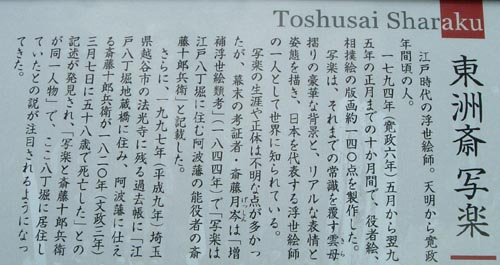 Toshusai Sharaku
東洲斎 写楽
江戸時代の浮世絵師。天明から寛政
年間頃の人。
一七九四年(寛政六年)五月から翌九
五年の正月までの十か月間で、役者絵、
相撲絵の版画約一四〇点を製作した。
写楽は、それまでの常識を覆す雲母
摺りの豪華な背景と、リアルな表情と
姿態を描き、日本を代表する浮世絵師
の一人として世界に知られている。
写楽の生涯や正体は不明な点が多かっ
たが、幕末の考証者・斎藤月岑は「増
補浮世絵類考」(一八四四年)で「写楽は
江戸八丁堀に住む阿波藩の能役者の斎
藤十郎兵衛」と記載した。
さらに、一九九七年(平成九年)埼玉
県越谷市の法光寺に残る過去帳に「江
戸八丁堀地蔵橋に住み、阿波藩に仕え
る斎藤十郎兵衛が一八二〇年(文政三年)
三月七日に五十八歳で死亡した」との
記述が発見され、「写楽と斎藤十郎兵衛
が同一人物」で、ここ八丁堀に居住し
ていたとの説が注目されるようになっ
てきた。